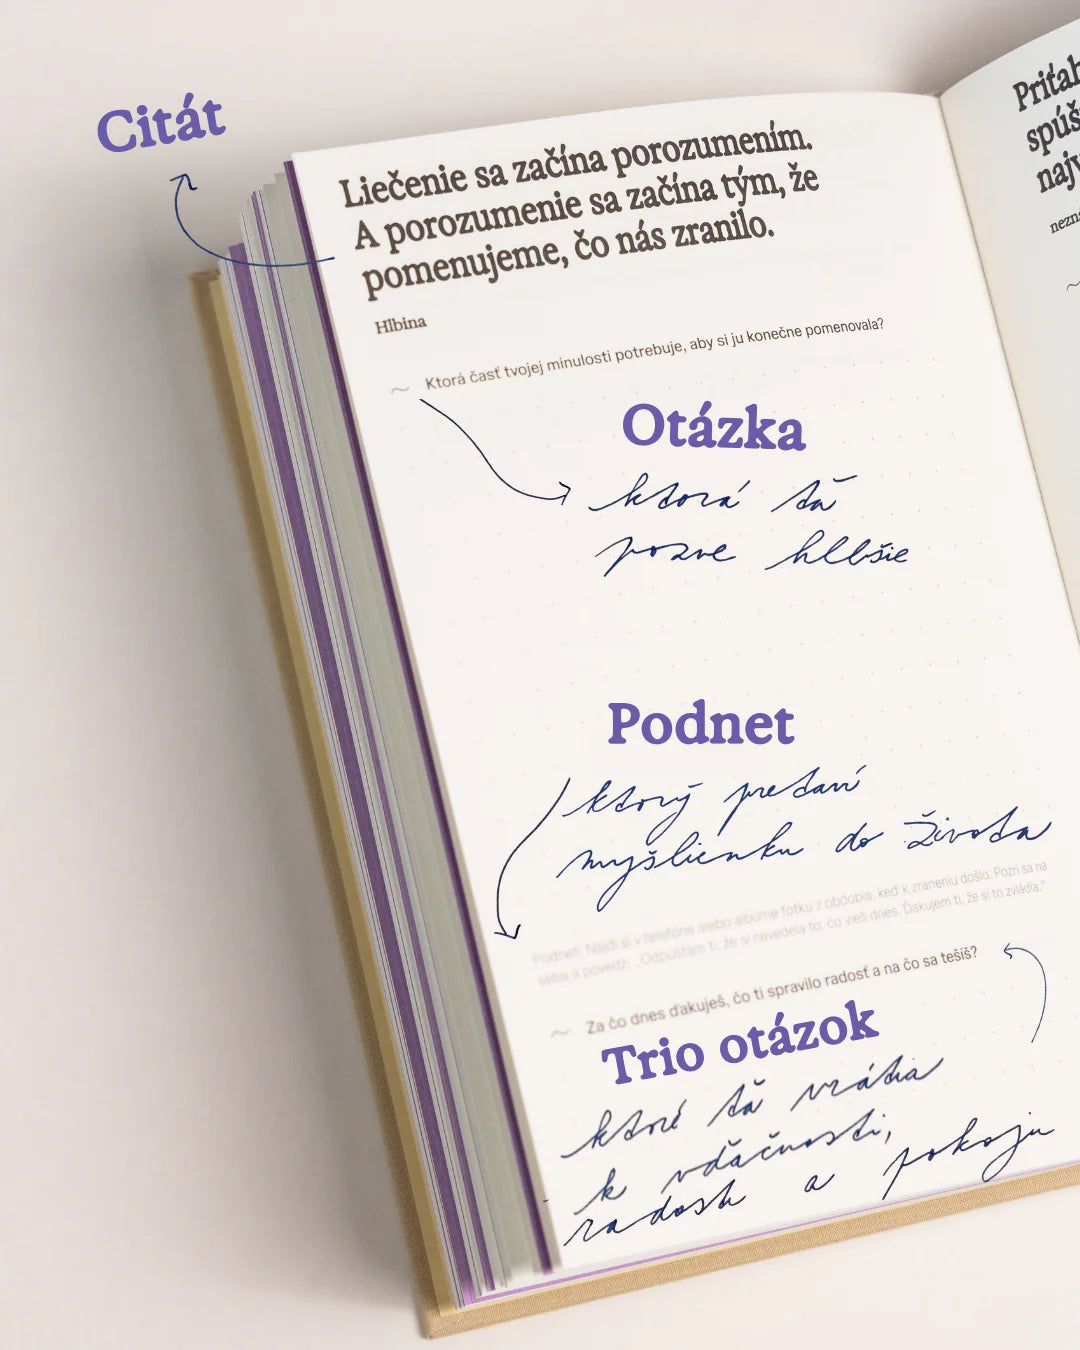 Citát
Liečenie sa začína porozumením.
A porozumenie sa začína tým, že
pomenujeme, čo nás zranilo.
Hlbina
~ Ktorá časť tvojej minulosti potrebuje, aby si ju konečne pomenovala?
Otázka
ktorá ťa
pozve hlbšie
Podnet
ktorý pretaví
myšlienku do života
Podnet: Nájdi si v telefóne alebo albume fotku z obdobia, keď k zraneniu došlo. Pozri sa na
seba a povedz: „Odpúšťam ti, že si nevedela to, čo vieš dnes. Ďakujem ti, že si to zvládla.“
~ Za čo dnes ďakuješ, čo ti spravilo radosť a na čo sa tešíš?
Trio otázok
ktoré ťa vrátia
k vďačnosti,
radosti a pokoju
Priťah
spúš
najv
nezná